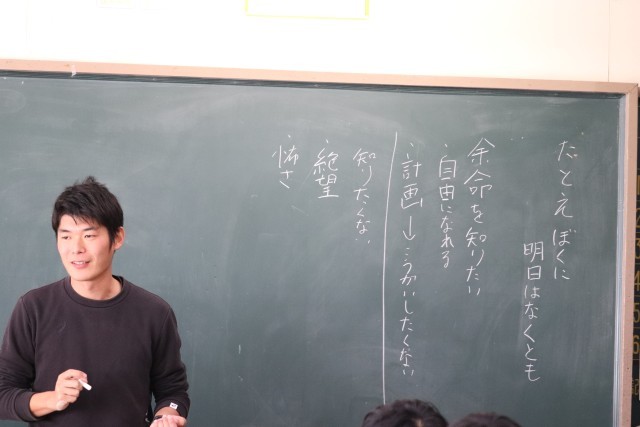 だとえぼくに
明日はなくとも
余命を知りたい
・自由になれる
・計画→こうかいしたくない
知りたくない
・絶望
・怖さ